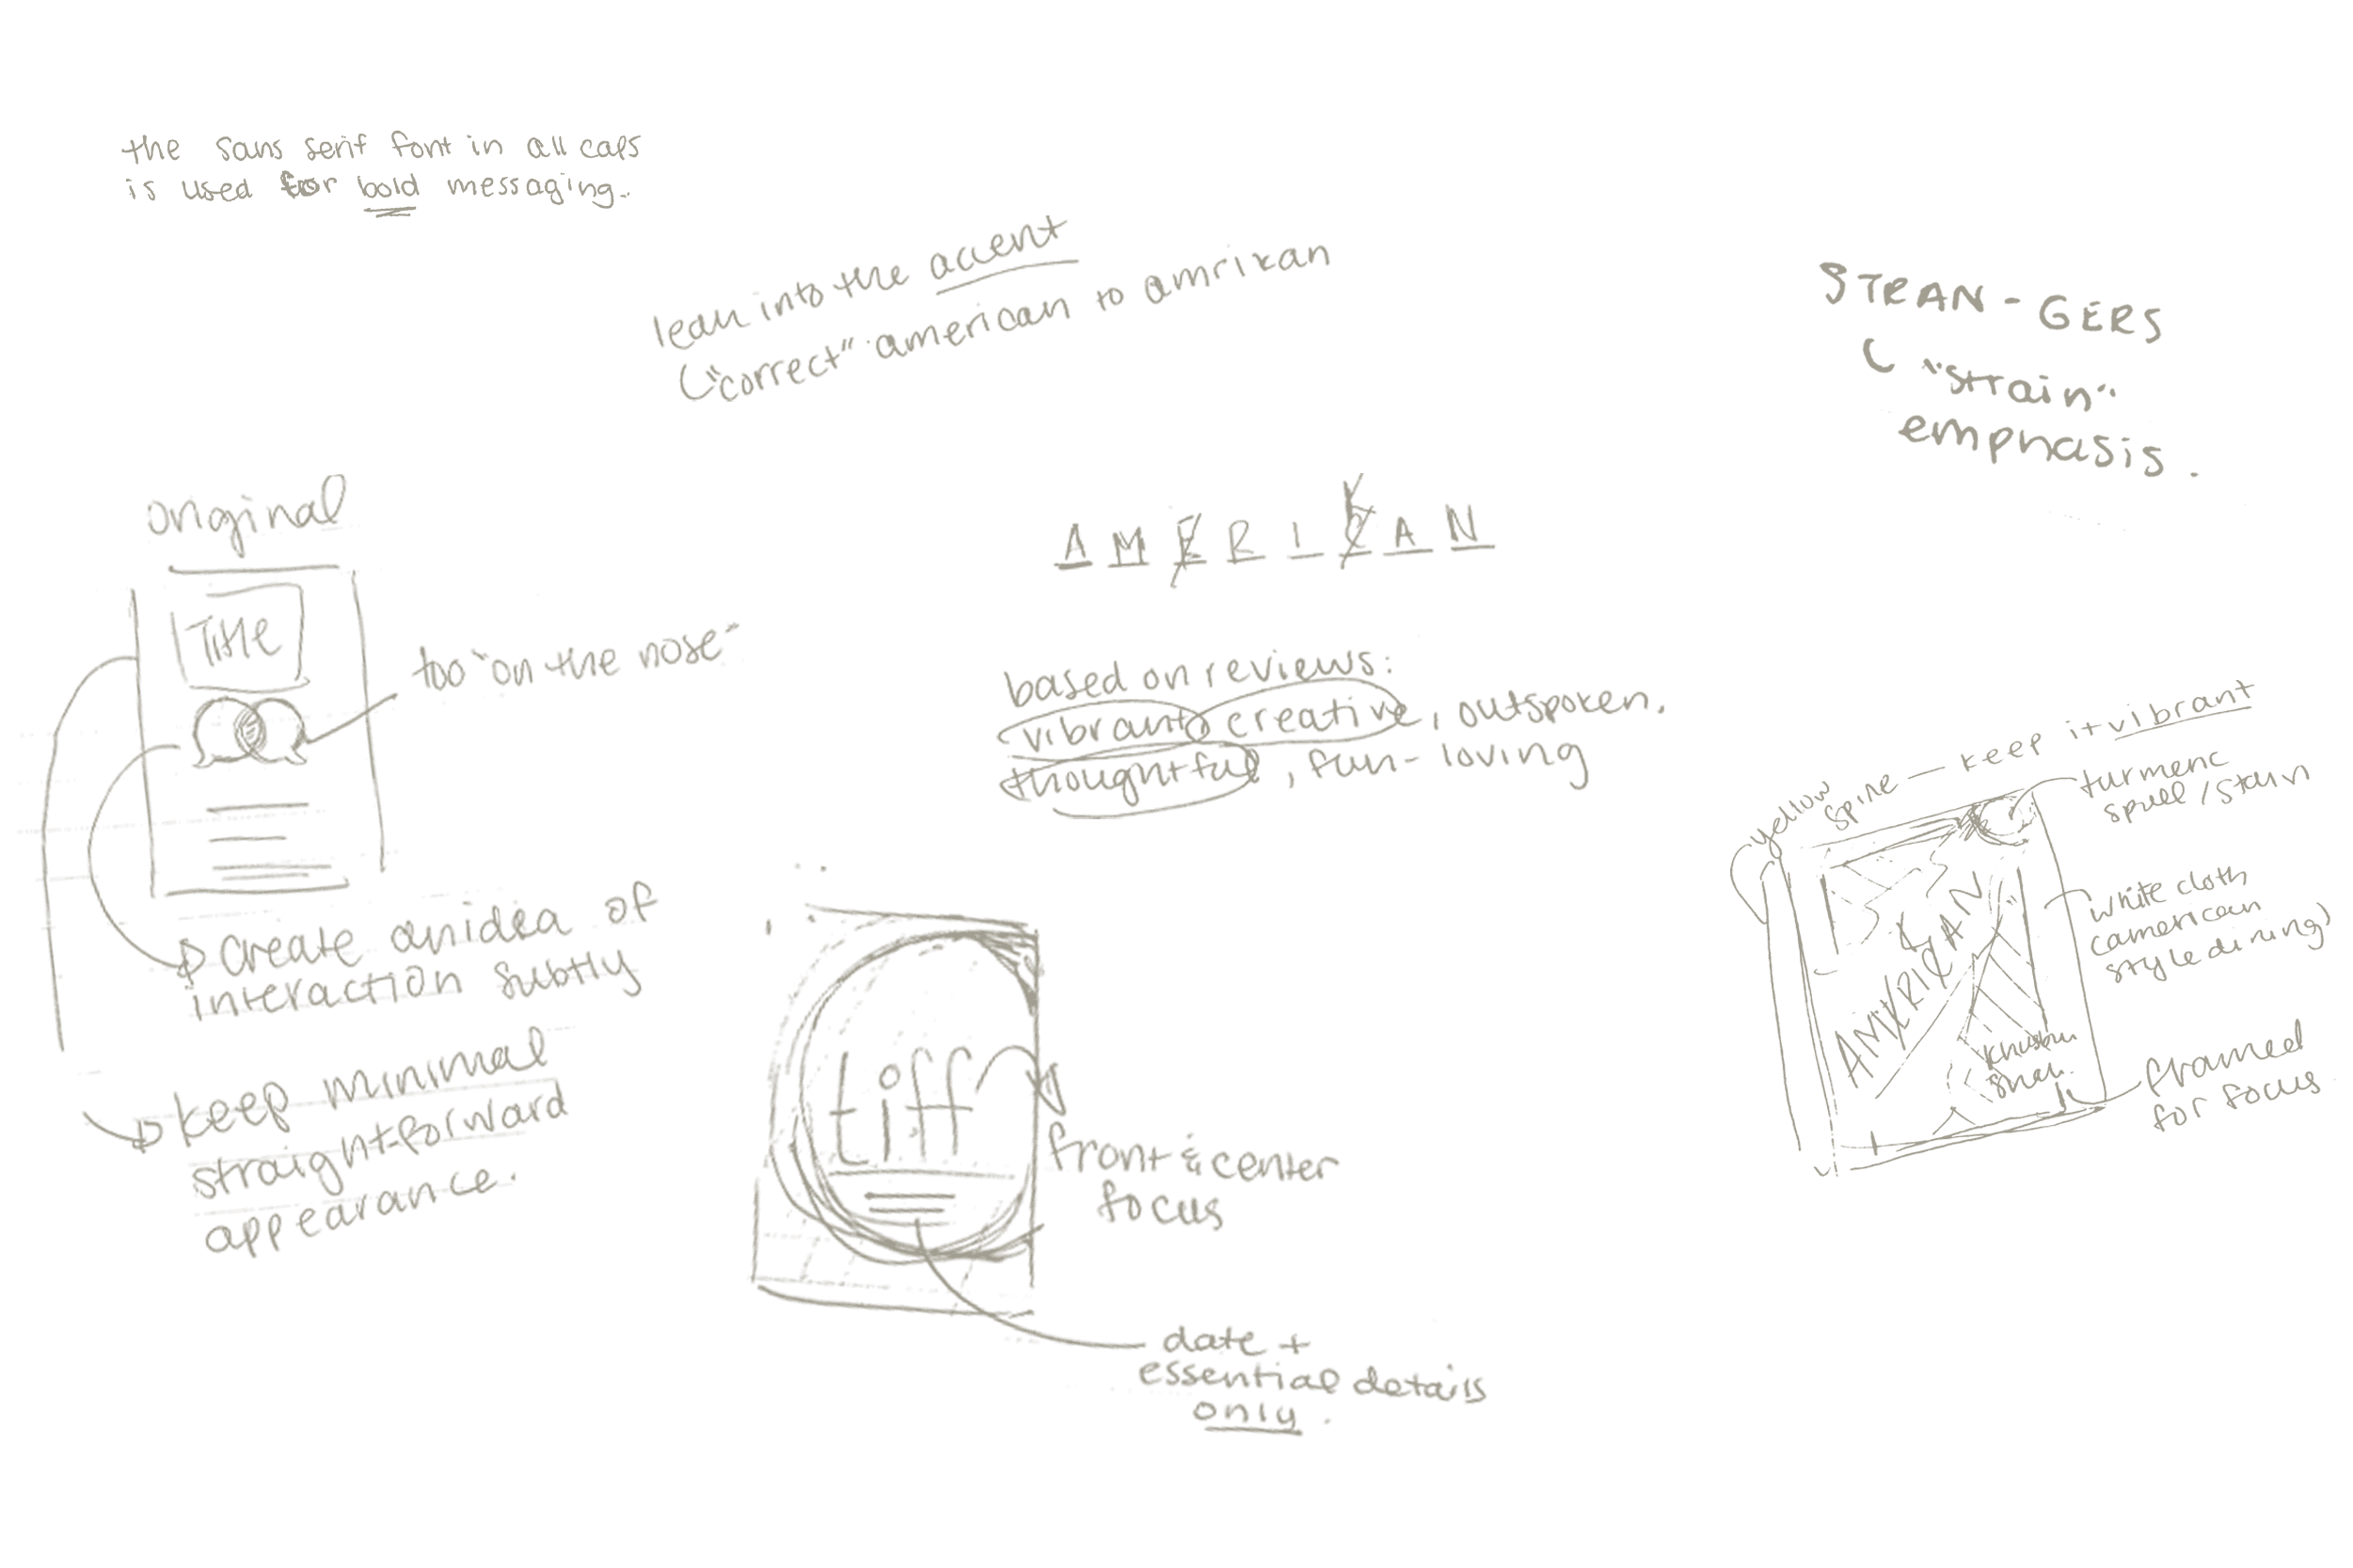 the sans serif font in all caps
is used for bold messaging.
lean into the accent
"correct" american to amrikan
STRAN-GERS
"strain"
emphasis.
original
Title
too "on the nose"
create an idea of
interaction subtly
keep minimal
straight-forward
appearance.
AMERICKAN
based on reviews:
vibrant, creative, outspoken,
thoughtful, fun-loving
tiff
front & center
focus
date +
essential details
only.
yellow
spine — keep it vibrant
turmeric
spill/stain
white cloth
(american
style dining)
framed
for focus
AMERICKAN
khushbu
shah